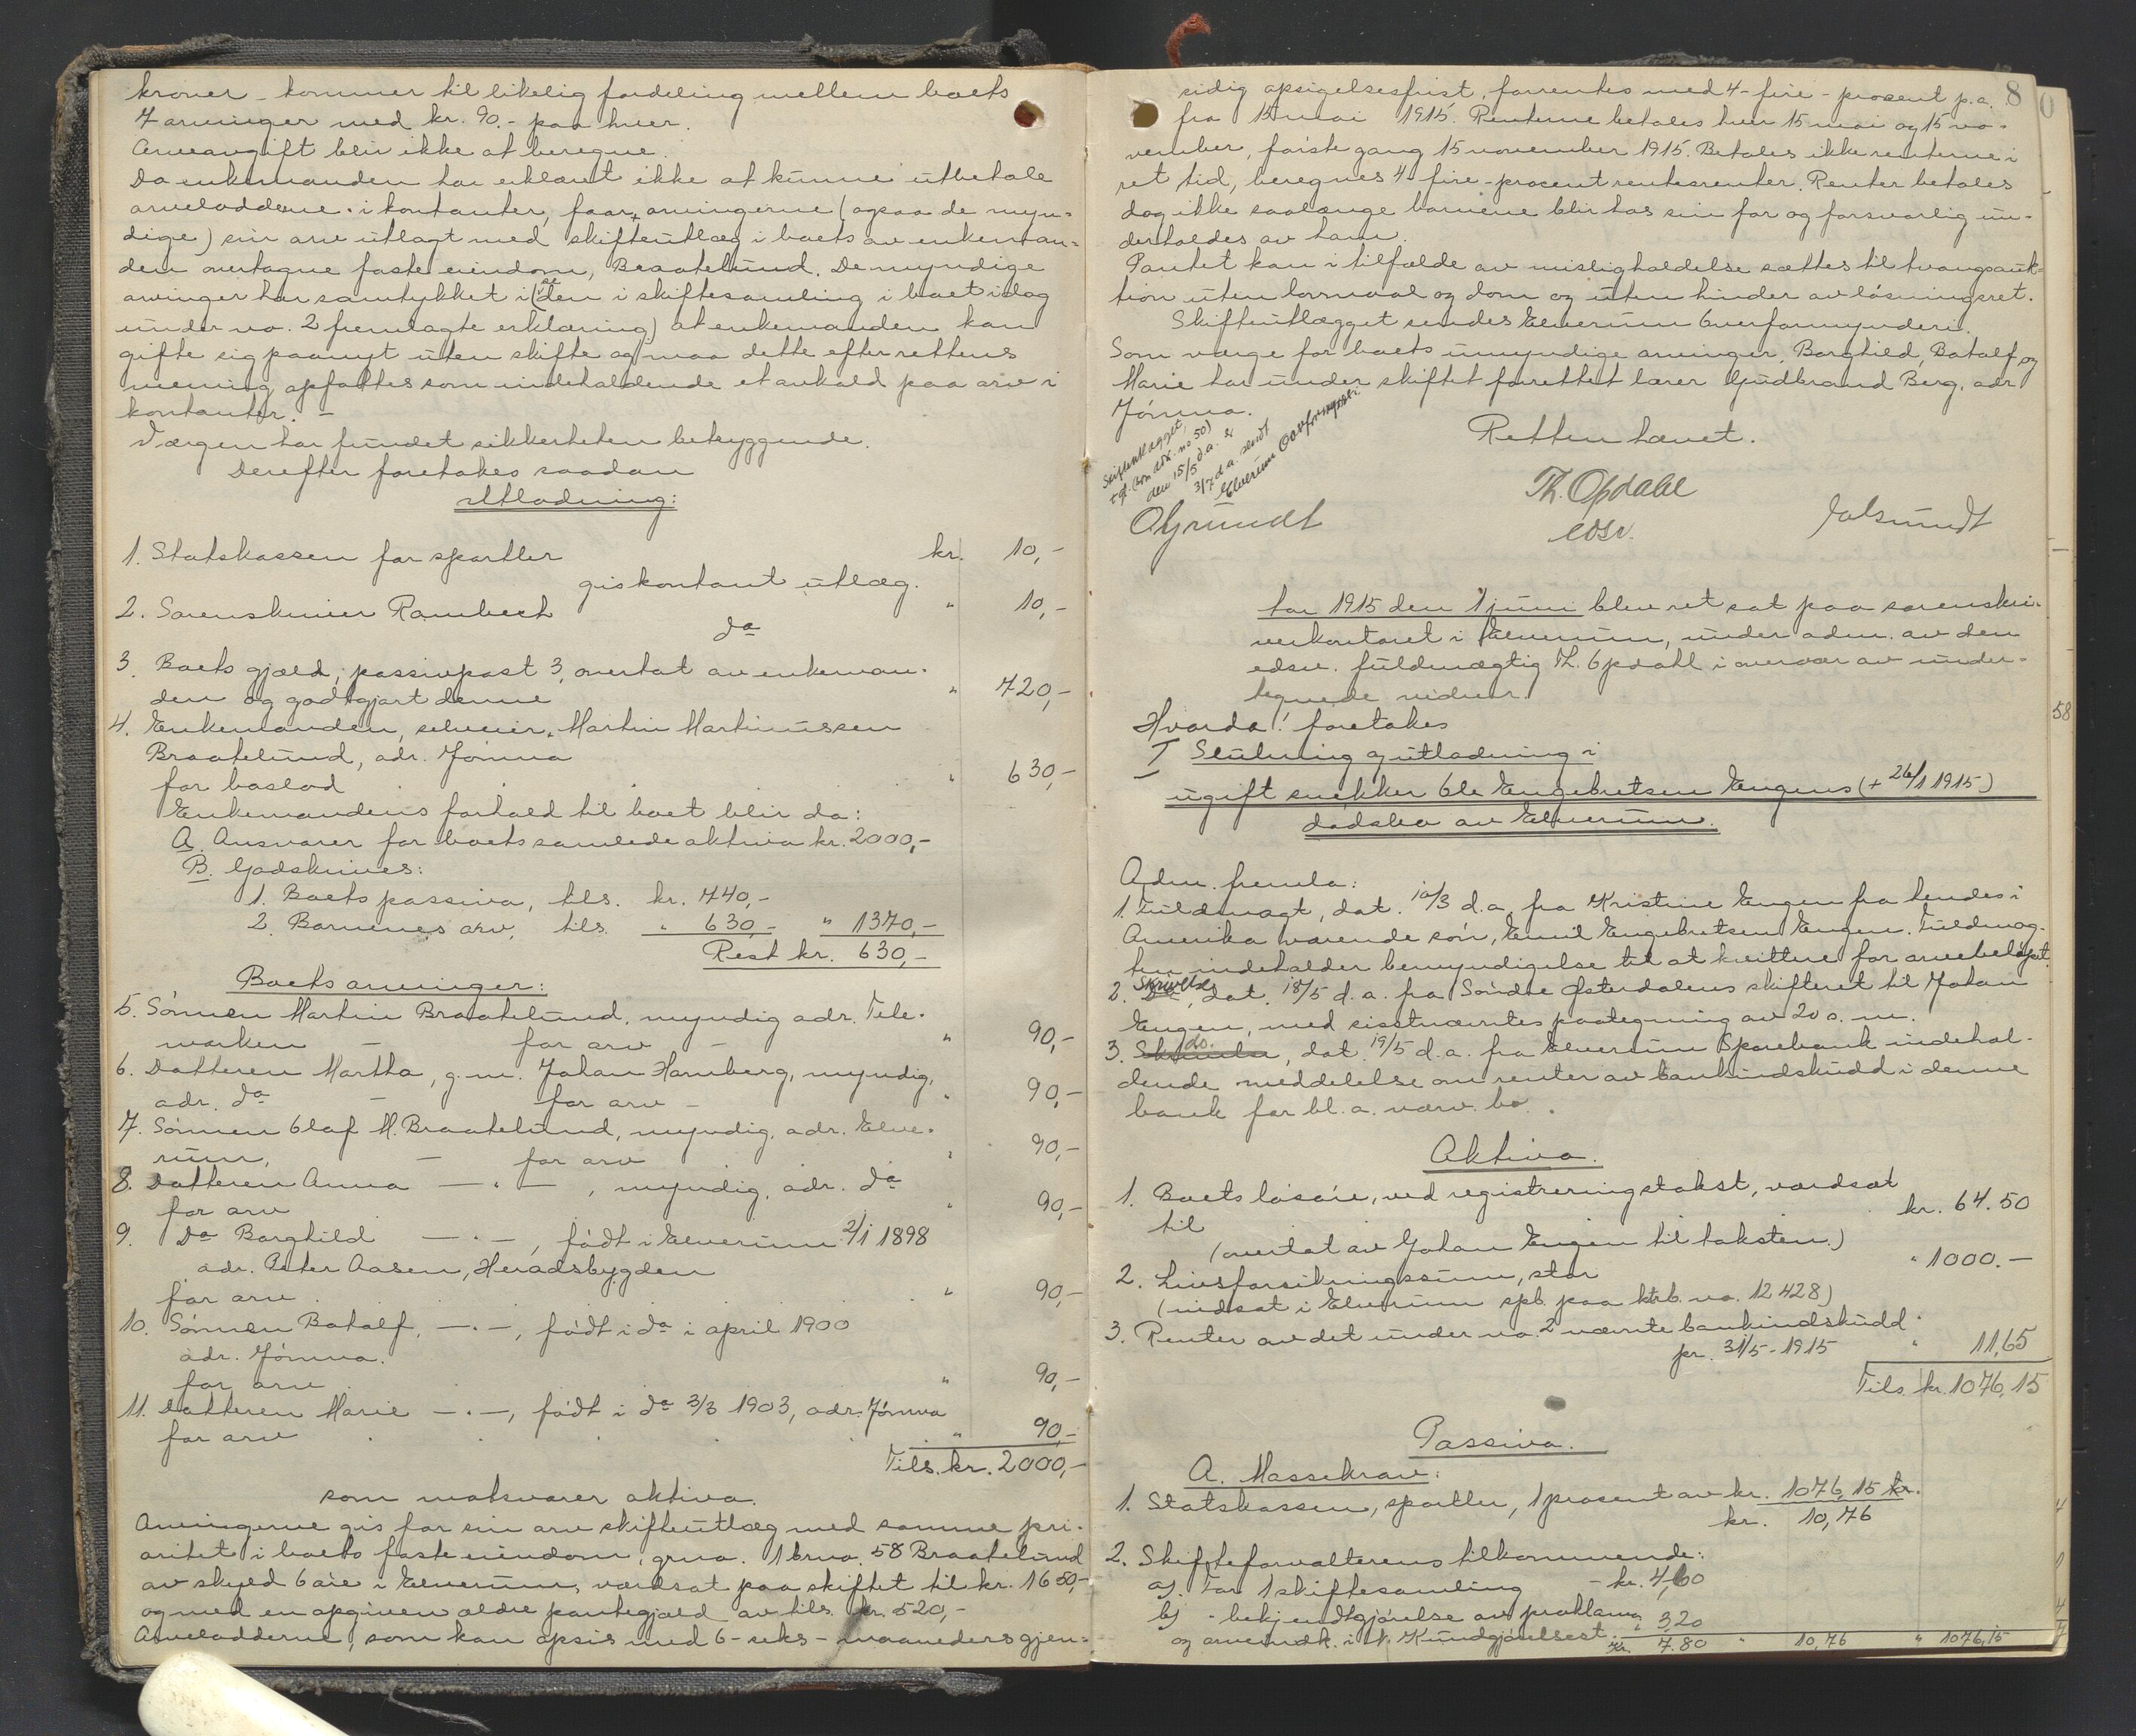 kroner - kommer til likelig fordeling mellem boets
7 arvinger med kr. 90.- paa hver.
Arveavgift blir ikke at beregne.
Da enkemanden har erklæret ikke at kunne utbetale
arveloddene i kontanter, faar arvingerne (ogsaa de myn-
dige) sin arv utlagt med skifteutlæg i boets av enkeman-
den overtagne faste eiendom, Braatelund. De myndige
arvinger har samtykket i (ved den i skiftesamling i boet idag
under no. 2 fremlagte erklæring) at enkemanden kan
gifte sig paanyt uten skifte og maa dette efter rettens
mening opfattes som indeholdende et avkald paa arv i
kontanter. -
Værgen har fundet sikkerheten betryggende.
Derefter foretokes saadan
Utlodning:
1. Statskassen for sportler kr. 10,-
gis kontant utlæg.
2. Sorenskriver Rambech " 10,-
do
3. Boets gjæld; passivpost 3, overtat av enkeman-
den og godtgjort denne " 720,-
4. Enkemanden, selveier Martin Martinussen
Braatelund, adr. Jömna
for boslod " 630,-
Enkemandens forhold til boet blir da:
A. Ansvarer for boets samlede aktiva kr. 2000,-
B. Godskrives:
1. Boets passiva, tils. kr. 740,-
2. Barnenes arv, tils. " 630,- " 1370,-
Rest kr. 630,-
Boets arvinger:
5. Sönnen Martin Braatelund, myndig adr. Tele-
marken - for arv - " 90,-
6. Datteren Martha, g. m. Johan Hamberg, myndig,
adr. do - for arv - " 90,-
7. Sönnen Olaf M. Braatelund, myndig, adr. Elve-
rum, - for arv " 90,-
8. Datteren Anna - " - , myndig, adr. do
for arv " 90,-
9. Do Borghild - " - , födt i Elverum 2/1 1898
adr. Peter Aasen, Heradsbygden
for arv " 90,-
10. Sönnen Botolf, - " -, födt i do i april 1900
adr. Jömna.
for arv " 90,-
11. Datteren Marie - " -, födt i do 3/3 1903, adr. Jömna
for arv " 90,-
Tils. kr. 2000,-
som motsvarer aktiva.
Arvingerne gis for sin arv skifteutlæg med samme pri-
oritet i boets faste eiendom, grno. 1 brno. 58 Braatelund
av skyld 6 öre i Elverum, værdsat paa skiftet til kr. 1650,-
og med en opgiven ældre pantegjæld av tils. kr. 520,-
Arveloddene, som kan opsis med 6 - seks - maaneders gjen-
8
sidig opsigelsesfrist, forrentes med 4 - fire - procent p.a.
fra 15 mai 1915. Renterne betales hver 15 mai og 15 no-
vember, förste gang 15 november 1915. Betales ikke renterne i
ret tid, beregnes 4 - fire - procent rentesrenter. Renter betales
dog ikke saalænge barnene blir hos sin far og forsvarlig un-
derholdes av ham.
Pantet kan i tilfælde av misligholdelse sættes til tvangsauk-
tion uten lovmaal og dom og uten hinder av lösningsret.
Skifteutlægget sendes Elverum Overformynderi.
Som værge for boets umyndige arvinger, Borghild, Botolf og
Marie har under skiftet forrettet lærer Gudbrand Berg, adr
Jömna.
Skifteutlægget,
tgl. (som dok. no 50)
den 15/5 d.a. er
3/7 d.a. sendt
Elverum Overformynderi
Retten hævet.
Th. Opdahl
edsv.
O Grundt
Aar 1915 den 1 juni blev ret sat paa sorenskri-
verkontoret i Elverum, under adm. av den
edsv. fuldmægtig Th. Opdahl i overvær av under-
tegnede vidner.
Hvorda! foretokes
I Slutning og utlodning i
ugift snekker Ole Engebretsen Engens (+ 26/1 1915)
dödsbo av Elverum.
Adm. fremla:
1. Fuldmagt, dat. 10/3 d.a. fra Kristine Engen fra hendes i
Amerika værende sön, Emil Engebretsen Engen. Fuldmag-
ten indeholder bemyndigelse til at kvittere for arvebelöpet.
2. Skrivelse, dat. 18/5 d.a. fra Söndre Österdalens skifteret til Johan
Engen, med sisstnævntes paategning av 20 s. m.
3. do., dat. 19/5 d.a. fra Elverum Sparebank indehol-
dende meddelelse om renter av bankindskudd i denne
bank for bl. a. nærv. bo.
Aktiva.
1. Boets lösöre, ved registreringstakst, værdsat
til kr. 64.50
(overtat av Johan Engen til taksten.)
2. Livsforsikringssum, stor " 1000.-
(indsat i Elverum spb. paa ktrb. no. 12428)
3. Renter av det under no. 2 nævnte bankindskudd
pr. 31/5 - 1915 " 11,65
Tils. kr. 1076,15
Passiva.
A. Massekrav:
1. Statskassen, sportler, 1 procent av kr. 1076,15 kr.
kr. 10,76
2. Skifteforvalterens tilkommende:
a). For 1 skiftesamling - kr. 4,60
b) - bekjendtgjörelse av proklama
og arveindk. i N. Kundgjörelsest. " 3,20
Kr. 7.80 " 10,76 " 1076,15
58